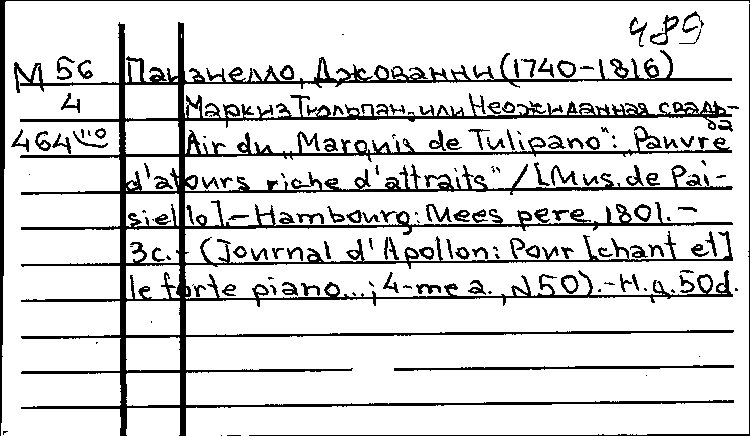 489
М 56 Паизиелло, Джованни (1740-1816)
4 Маркиз Тюльпан, или Неожиданная свадьба
464 Air du „Marquis de Tulipano": „Pauvre
d'atours riche d'attraits" / [Mus. de Pai-
siello]. - Hambourg: Mees pere, 1801. -
3с. - (Journal d'Apollon: Pour [chant et]
le forte piano...; 4-me a., N.50). - Н.д. 50d.